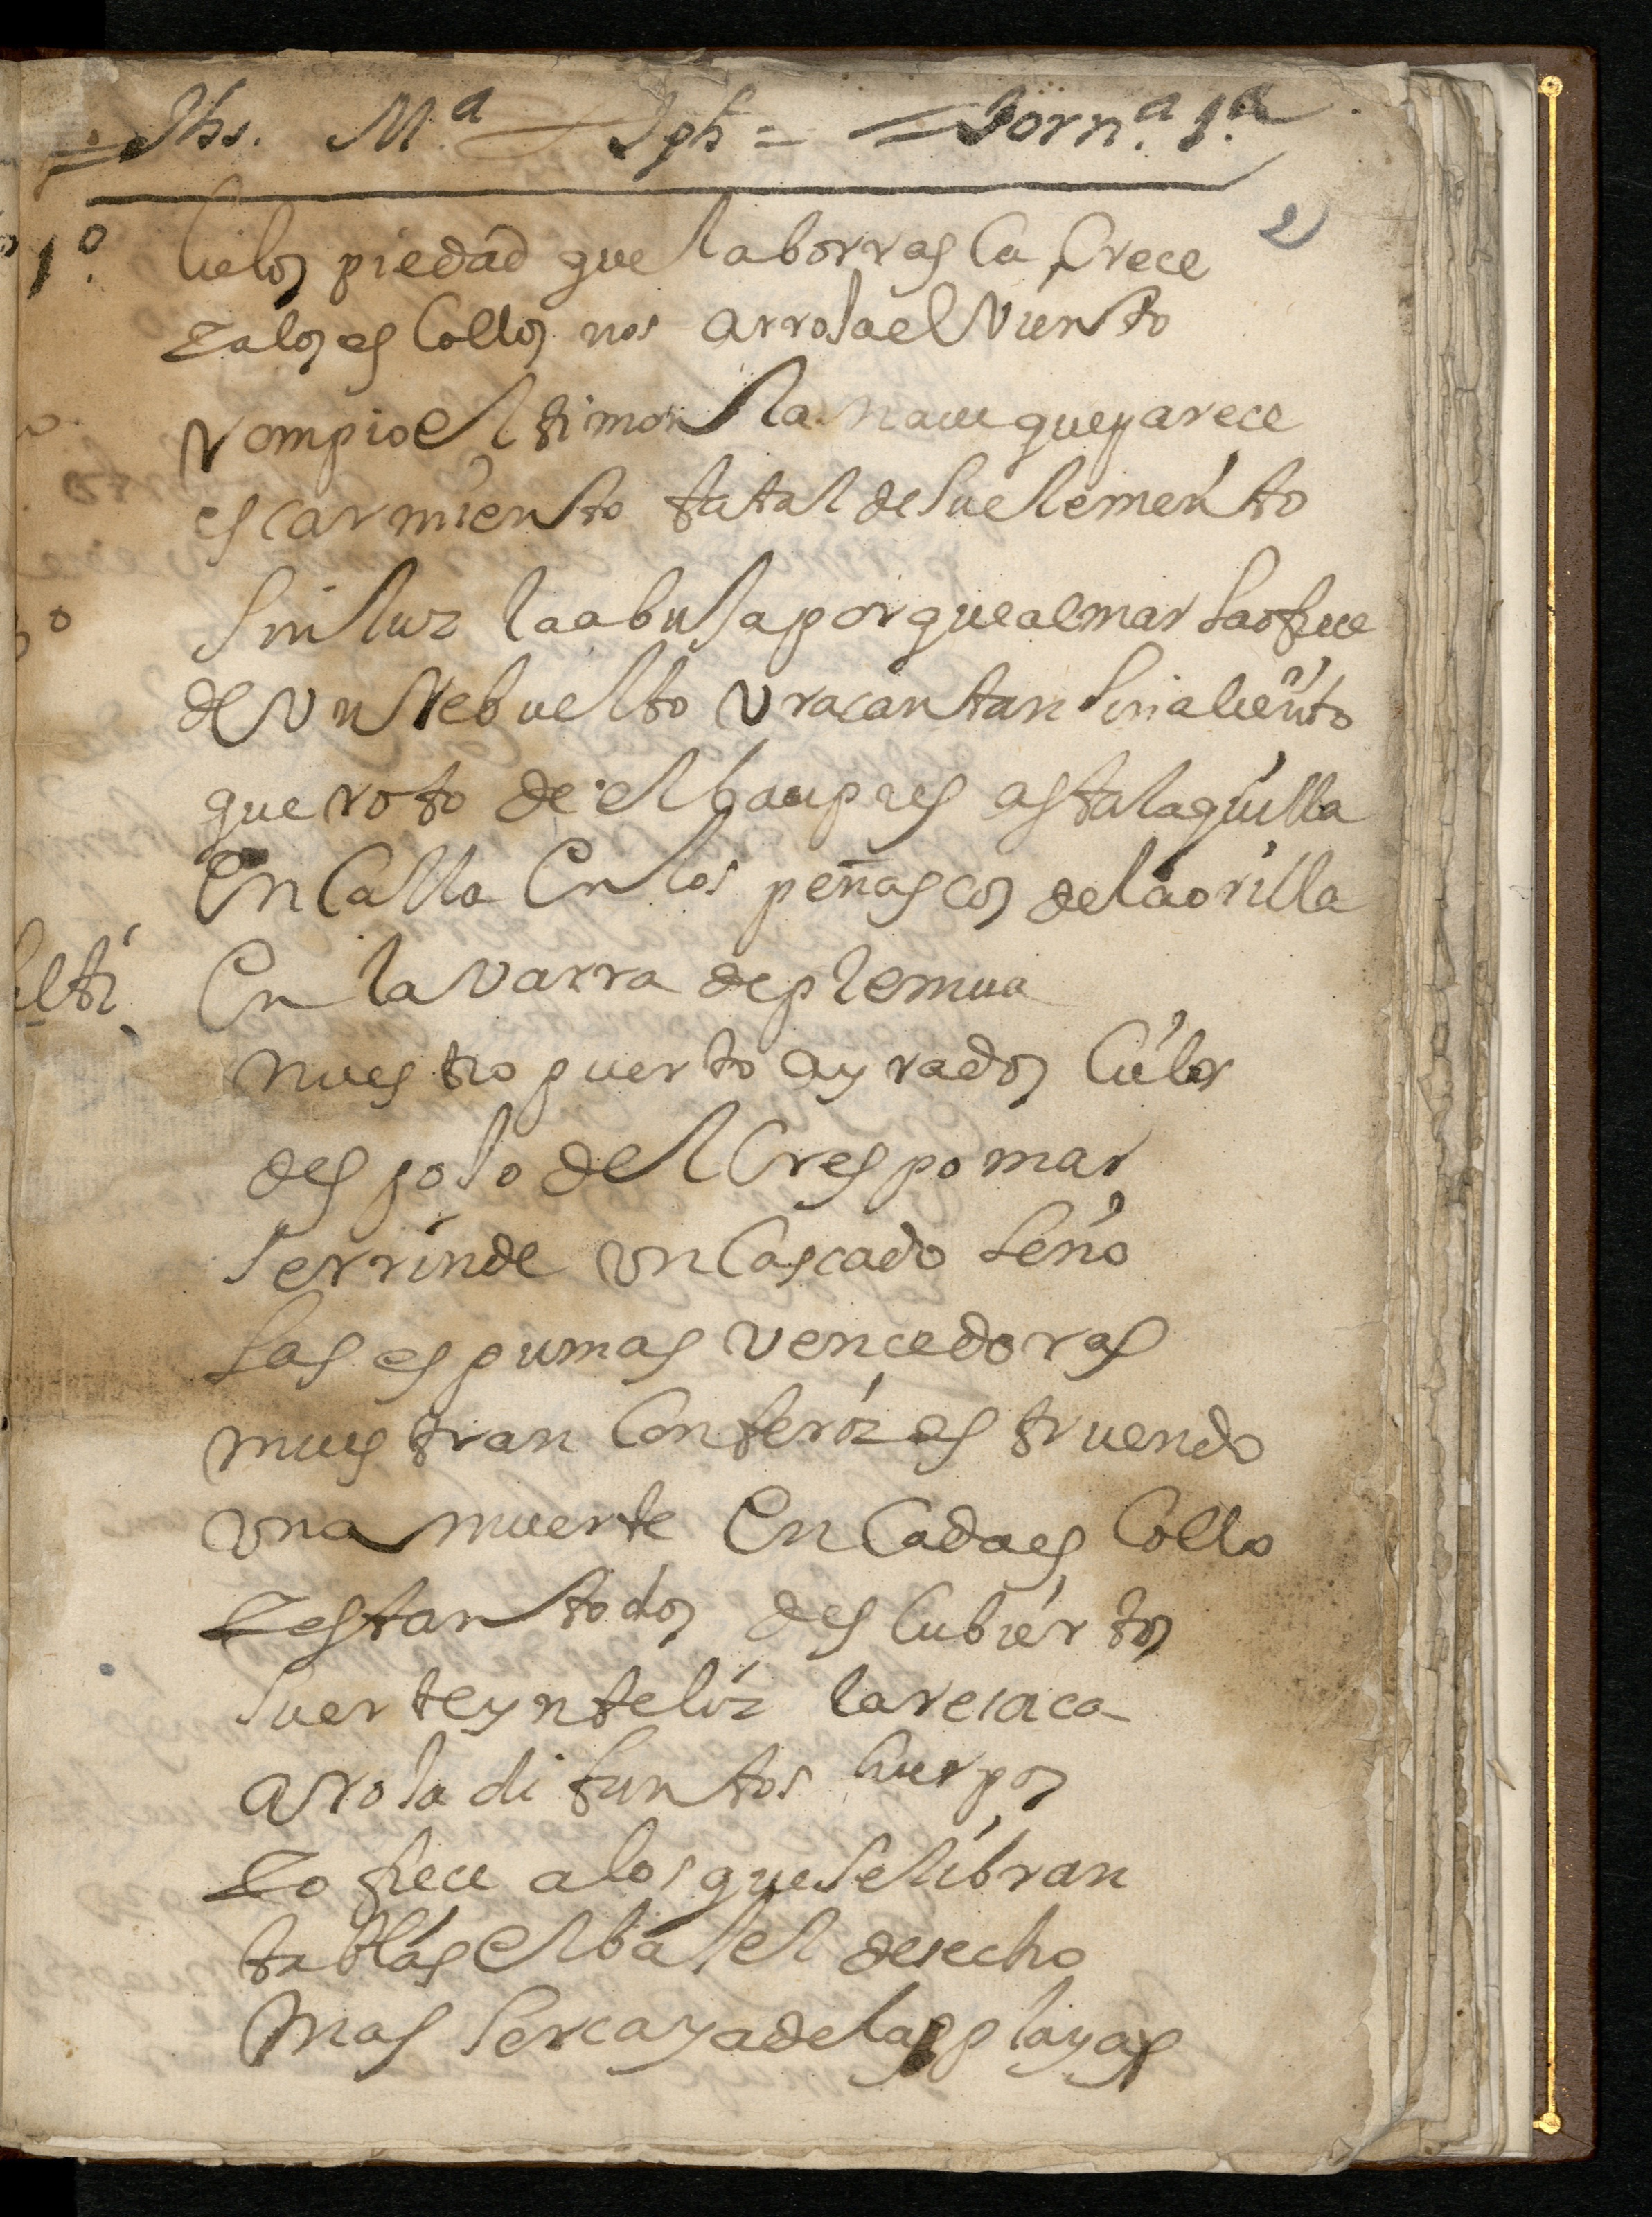 = Jhs. M.ª Jph = = Jorn.ª 1.ª
2
1º Cielos piedad que la borrasca Crece
Ya los escollos nos arroja el viento
rompio el timon la naue que parece
escarmiento fatal de su elemento
sin luz la abuja porque al mar la ofrece
de un Rebuelto uracan tan sin aliento
que roto de el baupres asta la quilla
En Calla En los peñascos de la orilla
En la varra de plemua
nuestro puerto ayrados Cielos
despojo del Crespo mar
se rrinde un Cascado leño
las espumas vencedoras
muestran Con feroz estruendo
una muerte En Cada es Collo
Y estan todos des Cubiertos
suerte ynfeliz la resaca
arroja difuntos Cuerpos
Y ofrece a los que se libran
tablas el bajel desecho
mas serca ya de las playas